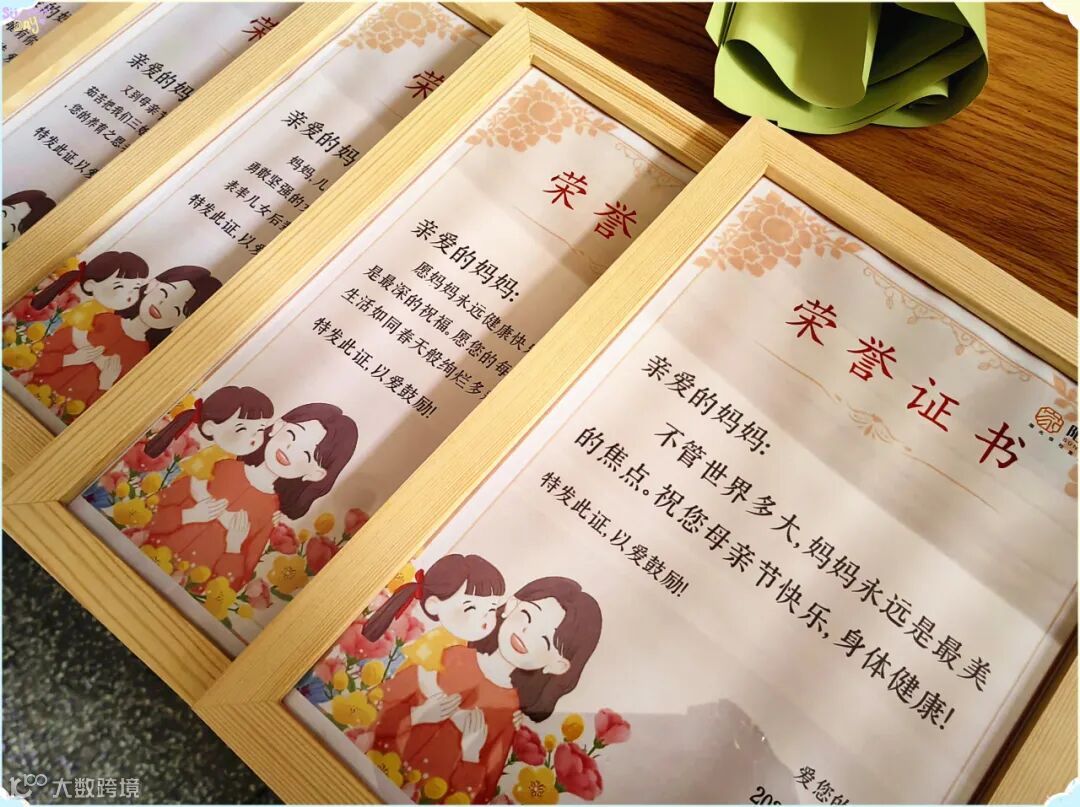 荣誉证书
亲爱的妈妈:
不管世界多大,妈妈永远是最美
的焦点。祝您母亲节快乐,身体健康!
特发此证,以爱鼓励!
爱您的
202
荣誉
亲爱的妈妈:
愿妈妈永远健康快
是最深的祝福。愿您的每
生活如同春天般绚烂多
特发此证,以爱鼓励!
荣
亲爱的妈妈
妈妈,儿
勇敢坚强的
表率儿女后
特发此证,以爱
荣
亲爱的妈
又到母亲
茹苦把我们三
,您的养育之恩
特发此证,以
大数跨境